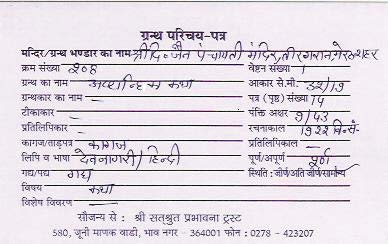 ग्रन्थ परिचय-पत्र
मन्दिर/ग्रन्थ भण्डार का नाम श्री दि॰ जैन पंचायती मंदिर, तीरगरान, मेरठ शहर
क्रम संख्या २०४ वेष्टन संख्या १
ग्रन्थ का नाम अष्टान्हिका कथा आकार से.मी.
ग्रन्थकार का नाम – पत्र (पृष्ठ) संख्या 14
टीकाकार – पंक्ति अक्षर ७/43
प्रतिलिपिकार – रचनाकाल १९२२
कागज/ताड़पत्र कागज प्रतिलिपिकाल –
लिपि व भाषा देवनागरी/हिन्दी पूर्ण/अपूर्ण पूर्ण
गद्य/पद्य गद्य स्थिति : जीर्ण/अति जीर्ण/सामान्य
विषय कथा
विशेष विवरण –
सौजन्य से : श्री सत्श्रुत प्रभावना ट्रस्ट
580, जूनी माणक वाडी, भाव नगर - 364001 फोन : 0278 - 423207